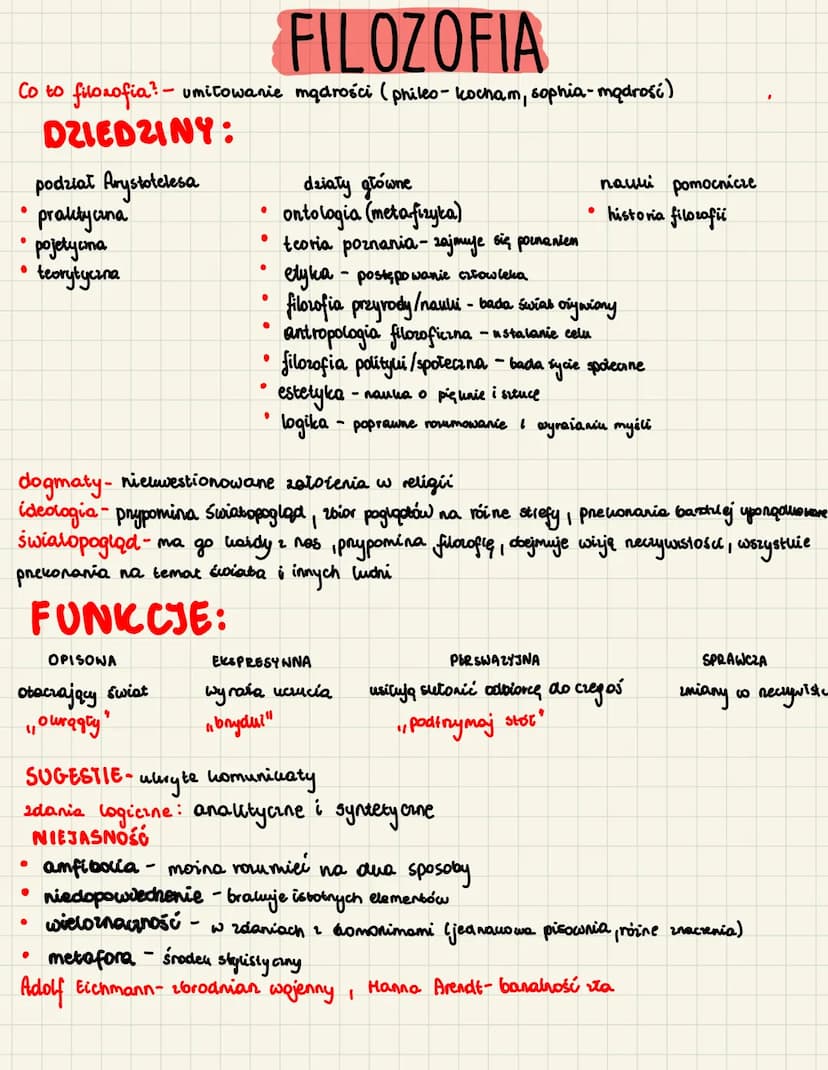 FILOZOFIA
Co to filozofia? - umiłowanie mądrości (phileo - kocham, sophia - mądrość)
DZIEDZINY:
podział Arystotelesa
• praktyczna
• pojetyczna
• teorytyczna
działy główne
• ontologia (metafizyka)
• teoria poznania - zajmuje się poznaniem
• etyka - postępowanie człowieka
• filozofia przyrody/nauki - bada świat ożywiony
• antropologia filozoficzna - ustalanie celu
• filozofia polityki/społeczna - bada życie społeczne
• estetyka - nauka o pięknie i sztuce
• logika - poprawne rozumowanie i wyrażaniu myśli
nauki pomocnicze
• historia filozofii
dogmaty - niekwestionowane założenia w religii
ideologia - przypomina światopogląd, zbiór poglądów na różne strefy, przekonania bardziej uporządkowane
światopogląd - ma go każdy z nas, przypomina filozofię, obejmuje wizję rzeczywistości, wszystkie
przekonania na temat świata i innych ludzi
FUNKCJE:
OPISOWA
otaczający świat
„okrągły"
EKSPRESYWNA
wyraża uczucia
„brzydki"
PERSWAZYJNA
usiłują skłonić odbiorcę do czegoś
„podtrzymaj stół"
SPRAWCZA
zmiany w
SUGESTIE - ukryte komunikaty
zdania logiczne: analityczne i syntetyczne
NIEJASNOŚĆ
• amfibolia - można rozumieć na dwa sposoby
• niedopowiedzenie - brakuje istotnych elementów
• wieloznaczność - w zdaniach z homonimami (jednakowa pisownia, różne znaczenia)
• metafora - środek stylistyczny
Adolf Eichmann - zbrodniarz wojenny, Hanna Arendt - banalność zła